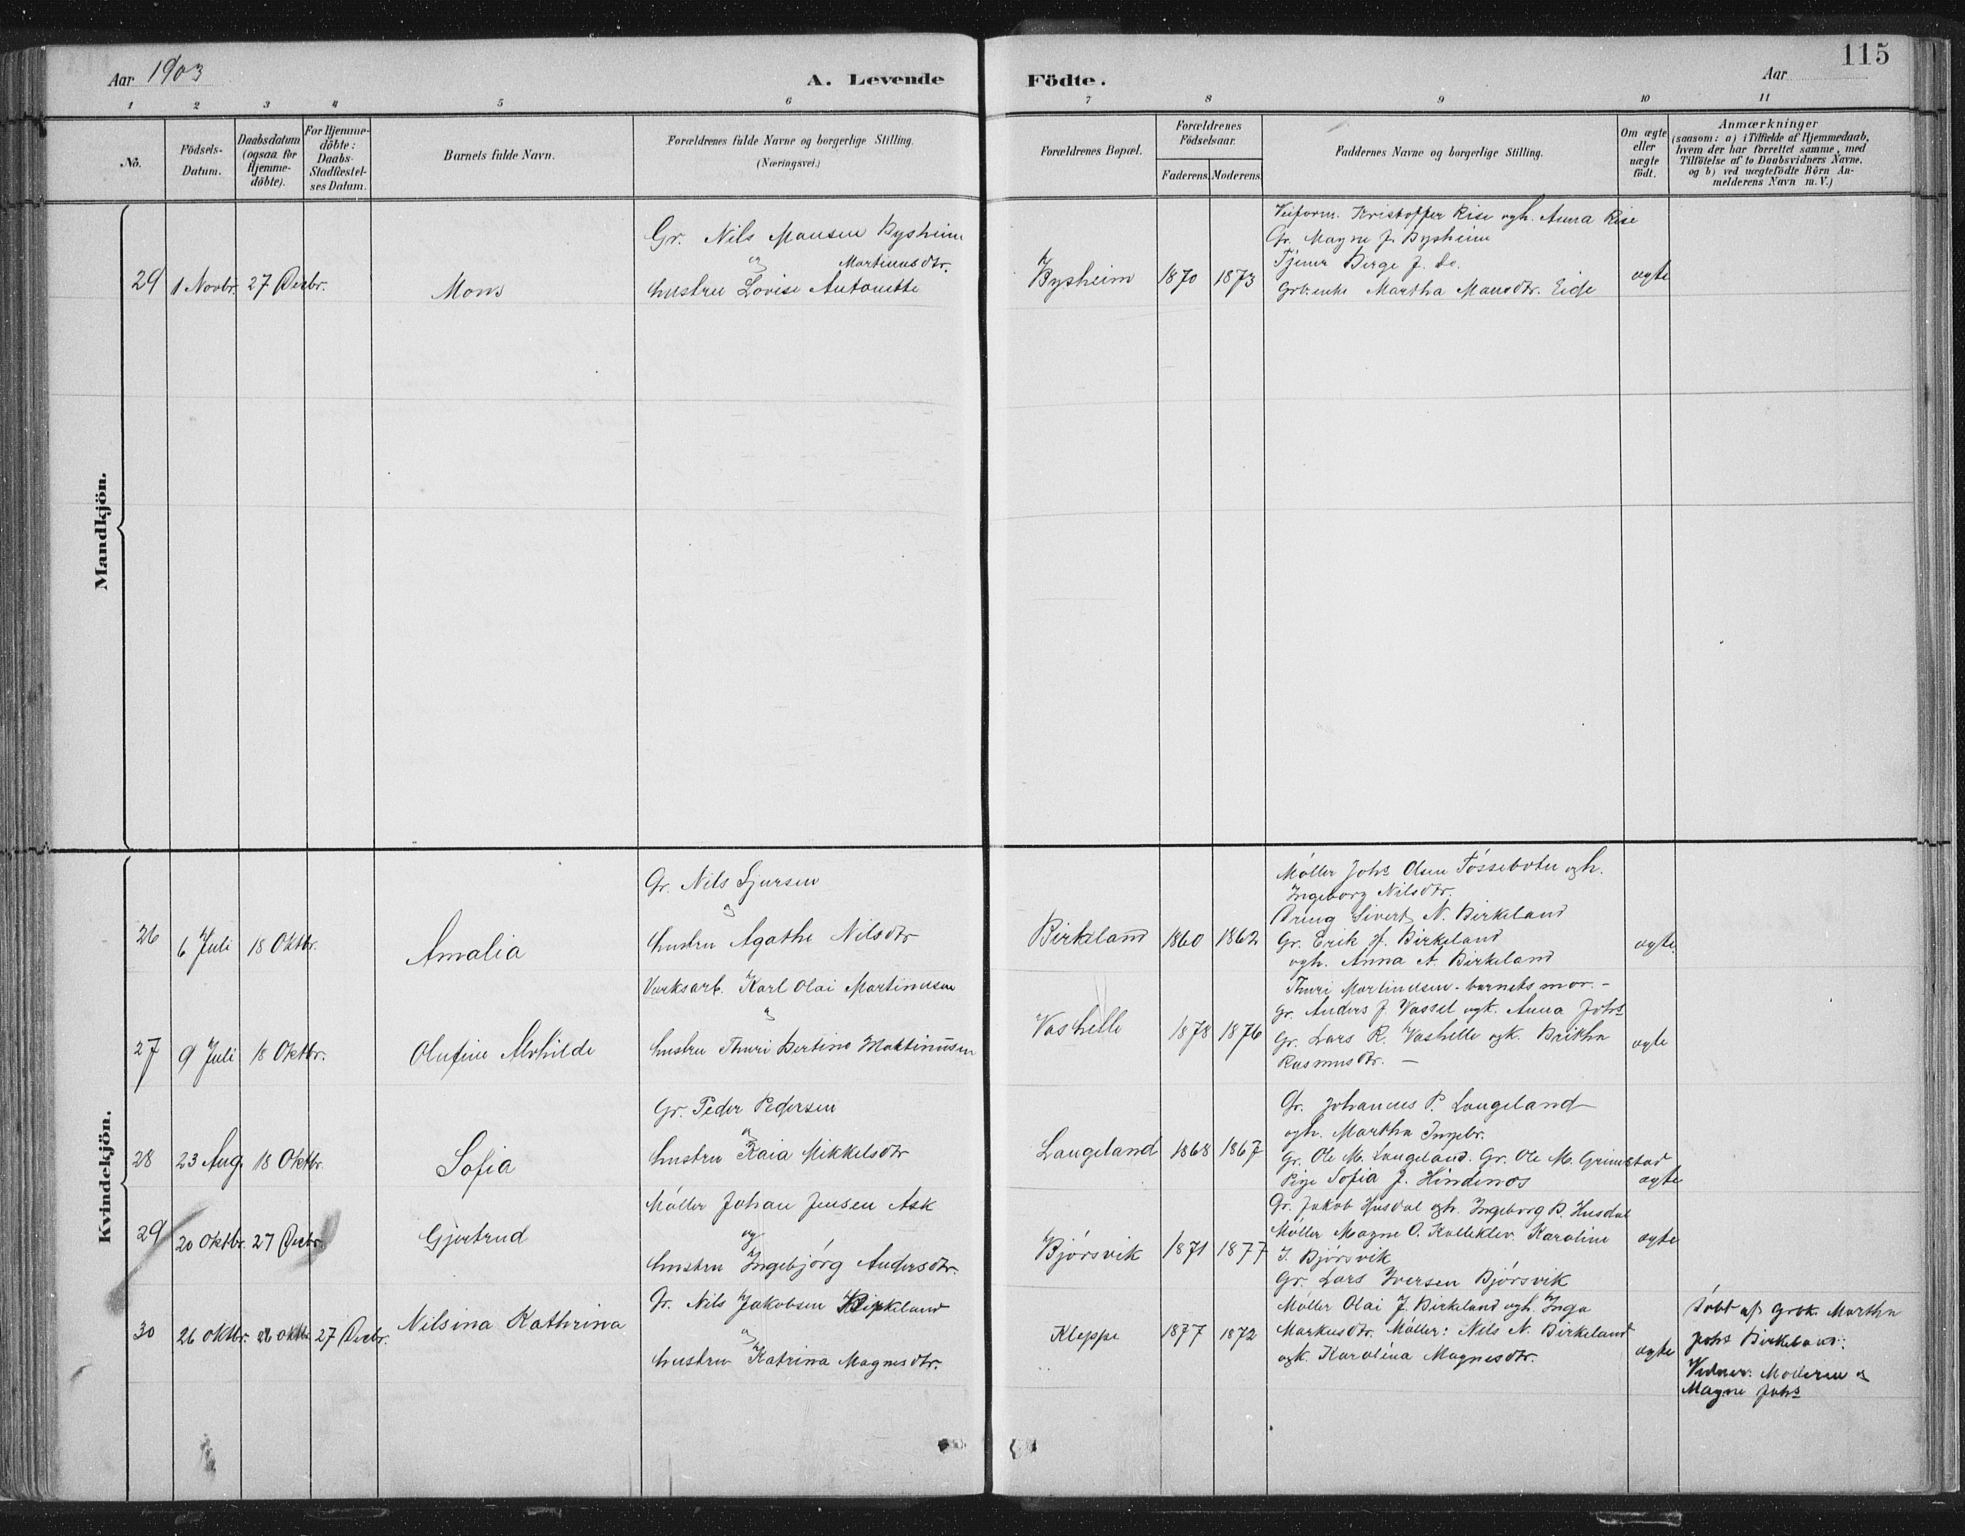 115
Aar 1903
A. Levende Födte.
Aar
1 2 3 4 5 6 7 8 9 10 11
No.
Födsels-Datum.
Daabsdatum (ogsaa for Hjemme-döbte).
For Hjemme-döbte: Daabs-Stadfæstel-ses Datum.
Barnets fulde Navn.
Forældrenes fulde Navne og borgerlige Stilling. (Næringsvei.)
Forældrenes Bopæl.
Forældrenes Födselsaar.
Faderens. Moderens.
Faddernes Navne og borgerlige Stilling.
Om ægte eller uægte födt.
Anmærkninger
(saasom: a) i Tilfælde af Hjemmedaab,
hvem der har forrettet samme, med
Tilföielse af to Daabsvidners Navne,
og b) ved uægtefödte Börn An-
melderens Navn m. V.)
Mandkjön.
29 1 Novbr. 27 Decbr.
Mons
Gr. Nils Monsen Bysheim
og Martinusdtr.
hustru Lovise Antonette
Bysheim 1870 1873
Veiform. Kristoffer Rise ogh. Anna Rise
Gr. Magne J. Bysheim
Tjener Berge J. do.
Grb.enke Martha Monsdtr. Eide
ægte
Kvindekjön.
26 6 Juli 18 Oktbr.
Amalia
Gr. Nils Sjursen
og
hustru Agathe Nilsdtr
Birkeland 1860 1862
Møller Johs Olsen Fossebotn ogh.
Ingeborg Nilsdtr.
Dreng Sivert N. Birkeland
Gr. Erik J. Birkeland
ogh. Anna A. Birkeland
ægte
27 9 Juli 18 Oktbr.
Olufine Alvhilde
Værksarb. Karl Olai Martinusen
og
hustru Thuri Bertine Martinusen
Vashelle 1878 1876
Thuri Martinusen - barnets mor. -
Gr. Anders J. Vassel ogk. Anna Johs
Gr. Lars R. Vashelle ogk. Briktha
Rasmusdtr. —
ægte
28 23 Aug. 18 Oktbr.
Sofia
Gr. Peder Pedersen
og
hustru Kaia Mikkelsdtr
Langeland 1868 1867
Gr. Johannes P. Langeland
ogh. Martha Ingebr.
Gr. Ole M. Langeland. Gr. Ole M. Grimstad
Pige Sofia J. Hindenes
ægte
29 20 Oktbr. 27 Decbr.
Gjertrud
Møller Johan Jensen Ask
og
hustru Ingebjørg Andersdtr.
Bjørsvik 1871 1877
Gr. Jakob Husdal ogh. Ingeborg B. Husdal
Møller Magne O. Kalleklev. Karoline
I. Bjørsvik
Gr. Lars Iversen Bjørsvik
ægte
30 26 Oktbr. 26 Oktbr. 27 Decbr.
Nilsina Kathrina
Gr. Nils Jakobsen Birkeland
og
hustru Katrina Magnesdtr.
Kleppe 1877 1872
Møller Olai J. Birkeland ogh. Inga
Markusdtr. Møller: Nils N. Birkeland
ogk. Karolina Magnesdtr.
ægte
Døbt af grdk. Martha
Johs Birkeland:
Vidner: Moderen og
Magne Johs